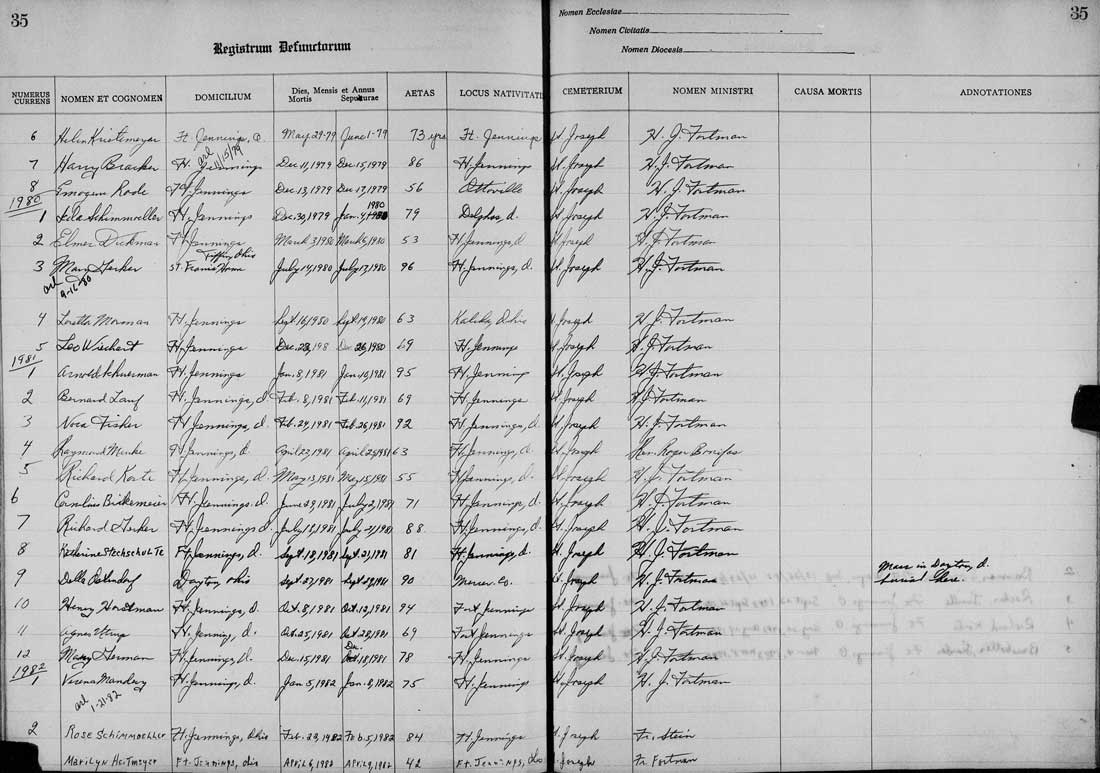 35
Nomen Ecclesiae
35
Nomen Civitatis
Registrum Defunctorum
Nomen Diocesis
NUMERUS CURRENS NOMEN ET COGNOMEN DOMICILIUM Dies, Mensis et Annus Mortis Sepulturae AETAS LOCUS NATIVITATIS CEMETERIUM NOMEN MINISTRI CAUSA MORTIS ADNOTATIONES
6 Helen Ft. Jennings, O May-29-79 June 1-79 73 yrs Ft. Jennings St. Joseph H. J. Fortman
11/15/79
7 Harry Bracker Ft. Jennings Dec 11, 1979 Dec 15, 1979 86 Ft. Jennings St. Joseph H. J. Fortman
8 Imogene Rode Ft. Jennings Dec 13, 1979 Dec 17, 1979 56 Ottoville St. Joseph H. J. Fortman
1980
1 Schimmoeller Ft. Jennings Dec. 30, 1979 Jan. 4, 1980 79 Delphos, O. St. Joseph H. J. Fortman
2 Elmer Dickman Ft. Jennings March 3, 1980 March 6, 1980 53 Ft. Jennings, O St. Joseph H. J. Fortman
Tiffin, Ohio
3 Mary Gerker St. Francis Home July 14, 1980 July 17, 1980 96 Ft. Jennings, O. St. Joseph H. J. Fortman
9-16-80
4 Loretta Morman Ft. Jennings Sept. 16, 1980 Sept. 19, 1980 63 Kalida, Ohio St. Joseph H. J. Fortman
5 Leo Wiechart Ft. Jennings Dec. 23, 198 Dec 26, 1980 69 Ft. Jennings St. Joseph H. J. Fortman
1981
1 Arnold Schuerman Ft. Jennings Jan. 8, 1981 Jan. 10, 1981 95 Ft. Jennings St. Joseph H. J. Fortman
2 Bernard Lauf Ft. Jennings, O. Feb. 8, 1981 Feb. 11, 1981 69 Ft. Jennings St. Joseph H. J. Fortman
3 Nora Fisher Ft. Jennings, O. Feb. 24, 1981 Feb. 26, 1981 92 Ft. Jennings, O. St. Joseph H. J. Fortman
4 Raymond Menke Ft. Jennings, O. April 23, 1981 April 25, 1981 63 Ft. Jennings, O. St. Joseph Rev. Roger Bonifas
5 Richard Korte Ft. Jennings, O. May 13, 1981 May 15, 1981 55 Ft. Jennings, O. St. Joseph H. J. Fortman
6 Cornelius Birkemeier Ft. Jennings, O June 29, 1981 July 2, 1981 71 Ft. Jennings, O. St. Joseph H. J. Fortman
7 Richard Gerker Ft. Jennings O. July 18, 1981 July 21, 1981 88 Ft. Jennings, O. St. Joseph H. J. Fortman
8 Katherine Stechschulte Ft. Jennings, O. Sept. 18, 1981 Sept. 21, 1981 81 Ft. Jennings, O. St. Joseph H. J. Fortman
9 Della Dayton, Ohio Sept. 27, 1981 Sept. 1981 90 Mercer Co. St. Joseph H. J. Fortman Mass in Dayton, O. buried there.
10 Henry Horstman Ft. Jennings, O. Oct. 8, 1981 Oct. 12, 1981 94 Fort Jennings St. Joseph H. J. Fortman
11 Agnes Utrup Ft. Jennings, O. Oct. 25, 1981 Oct. 28, 1981 69 Fort Jennings St. Joseph H. J. Fortman
12 Mary German Ft. Jennings, O. Dec. 15, 1981 Dec. 18, 1981 78 Ft. Jennings St. Joseph H. J. Fortman
1982
1 Verena Mandery Ft. Jennings, O. Jan. 5, 1982 Jan. 8, 1982 75 Ft. Jennings St. Joseph H. J. Fortman
1-21-82
2 Rose Schimmoeller Ft. Jennings, Ohio Feb. 1982 Feb. 5, 1982 84 Ft. Jennings St. Joseph Fr. Stein
Marilyn Heitmeyer Ft. Jennings, Ohio April 6, 1982 April 9, 1982 42 Ft. Jennings, Ohio St. Joseph Fr. Fortman